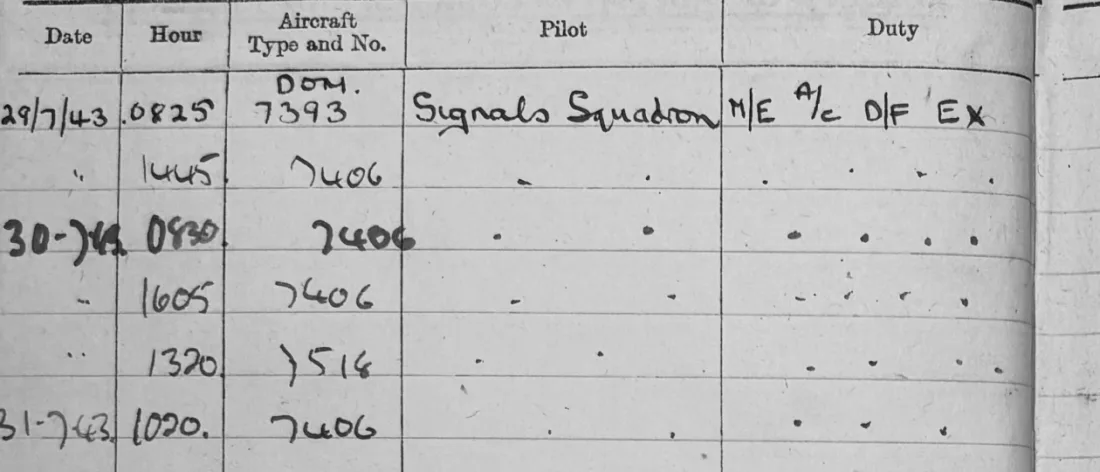 Date Hour Aircraft Type and No. Pilot Duty
DOM.
29/7/43 .0825 7393 Signals Squadron M/E A/c D/F EX
" 1445 7406 " " " " " "
30-7-43 0830 7406 " " " " " "
" 1605 7406 " " " " " "
" 1320 7518 " " " " "
31-7-43 1020. 7406 " " " " "